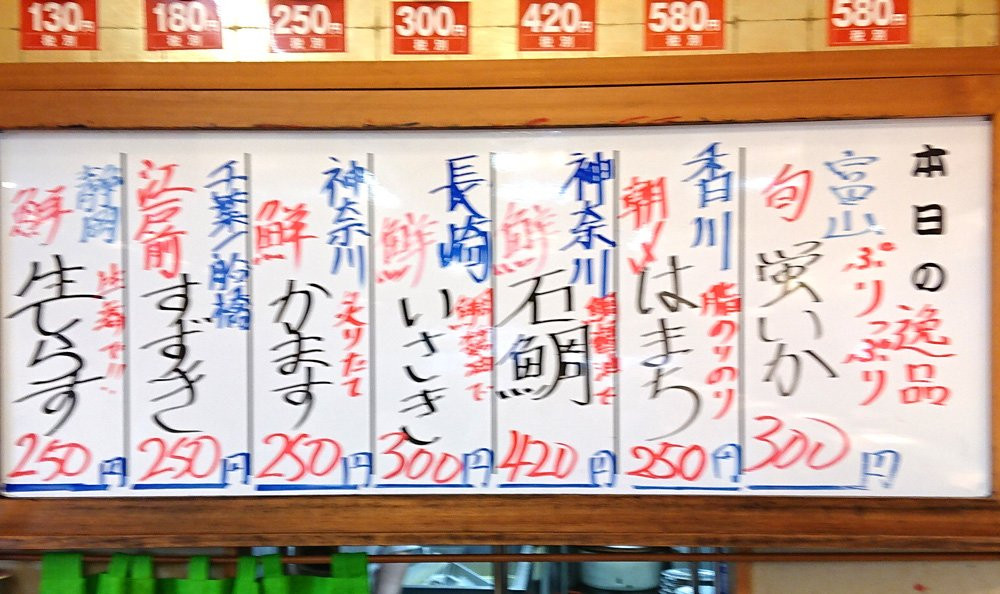 130円
税別
180円
税別
250円
税別
300円
税別
420円
税別
580円
税別
580円
税別
本日の逸品
富山
ぷりっぷり
旬
蛍いか
300円
香川
脂のりのり
朝〆
はまち
250円
神奈川
鯛醤油で
鮮
石鯛
420円
長崎
鯛醤油で
鮮
いさき
300円
神奈川
炙りたて
鮮
かます
250円
千葉/船橋
江戸前
すずき
250円
静岡
出汁で!!
鮮
生しらす
250円